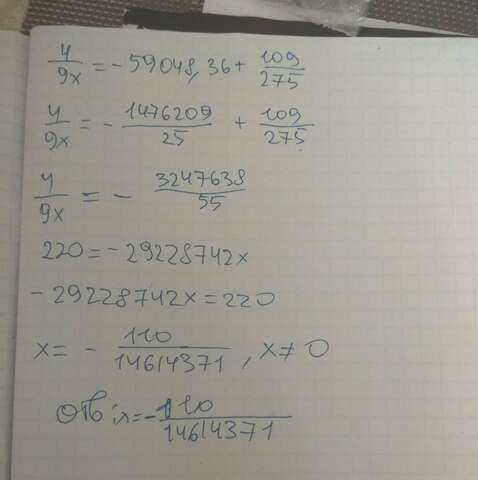 4/9x = - 59048,36 + 109/275
4/9x = - 1476209/25 + 109/275
4/9x = - 3247638/55
220 = - 29228742x
- 29228742x = 220
x = - 110/14614371, x ≠ 0
Отв: x = - 110/14614371